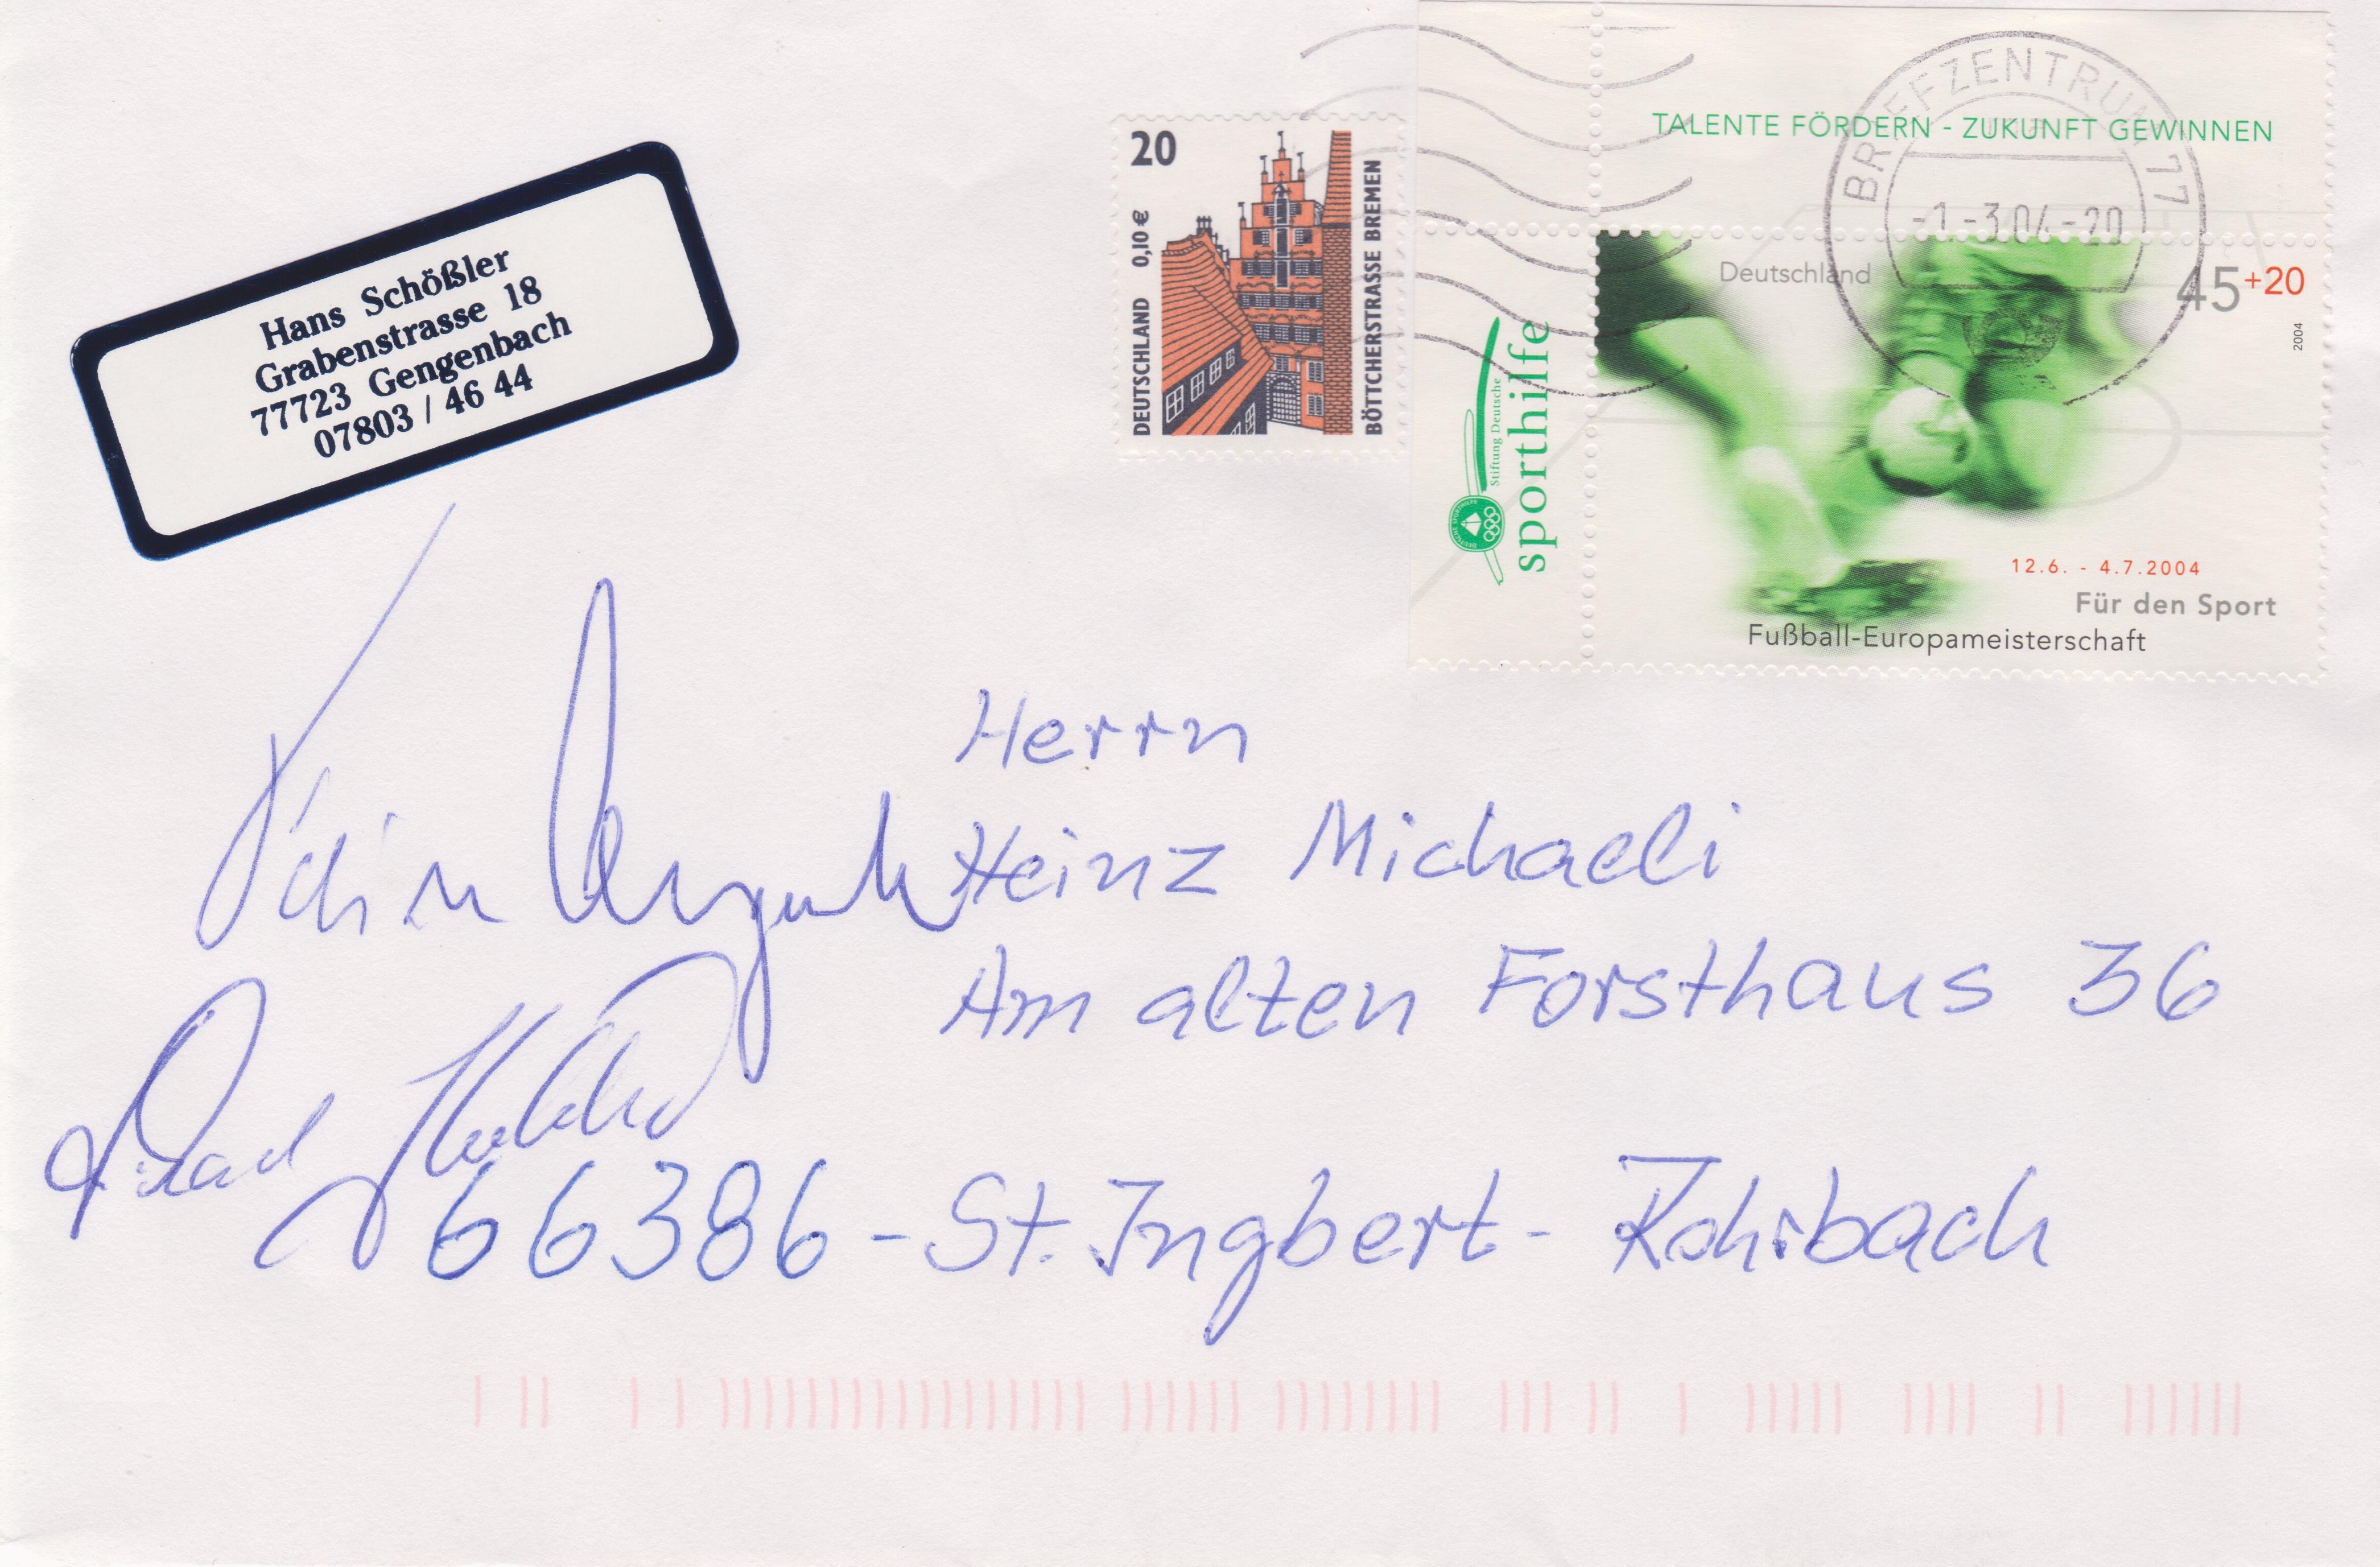 Hans Schößler
Grabenstrasse 18
77723 Gengenbach
07803 / 46 44
20
DEUTSCHLAND 0,10 €
BÖTTCHERSTRASSE BREMEN
TALENTE FÖRDERN - ZUKUNFT GEWINNEN
BRIEFZENTRUM 77
-1.-3.04-20
Deutschland
45+20
2004
Stiftung Deutsche
sporthilfe
12.6. - 4.7.2004
Für den Sport
Fußball-Europameisterschaft
Herrn
Heinz Michaeli
Am alten Forsthaus 36
66386 - St. Ingbert - Rohrbach